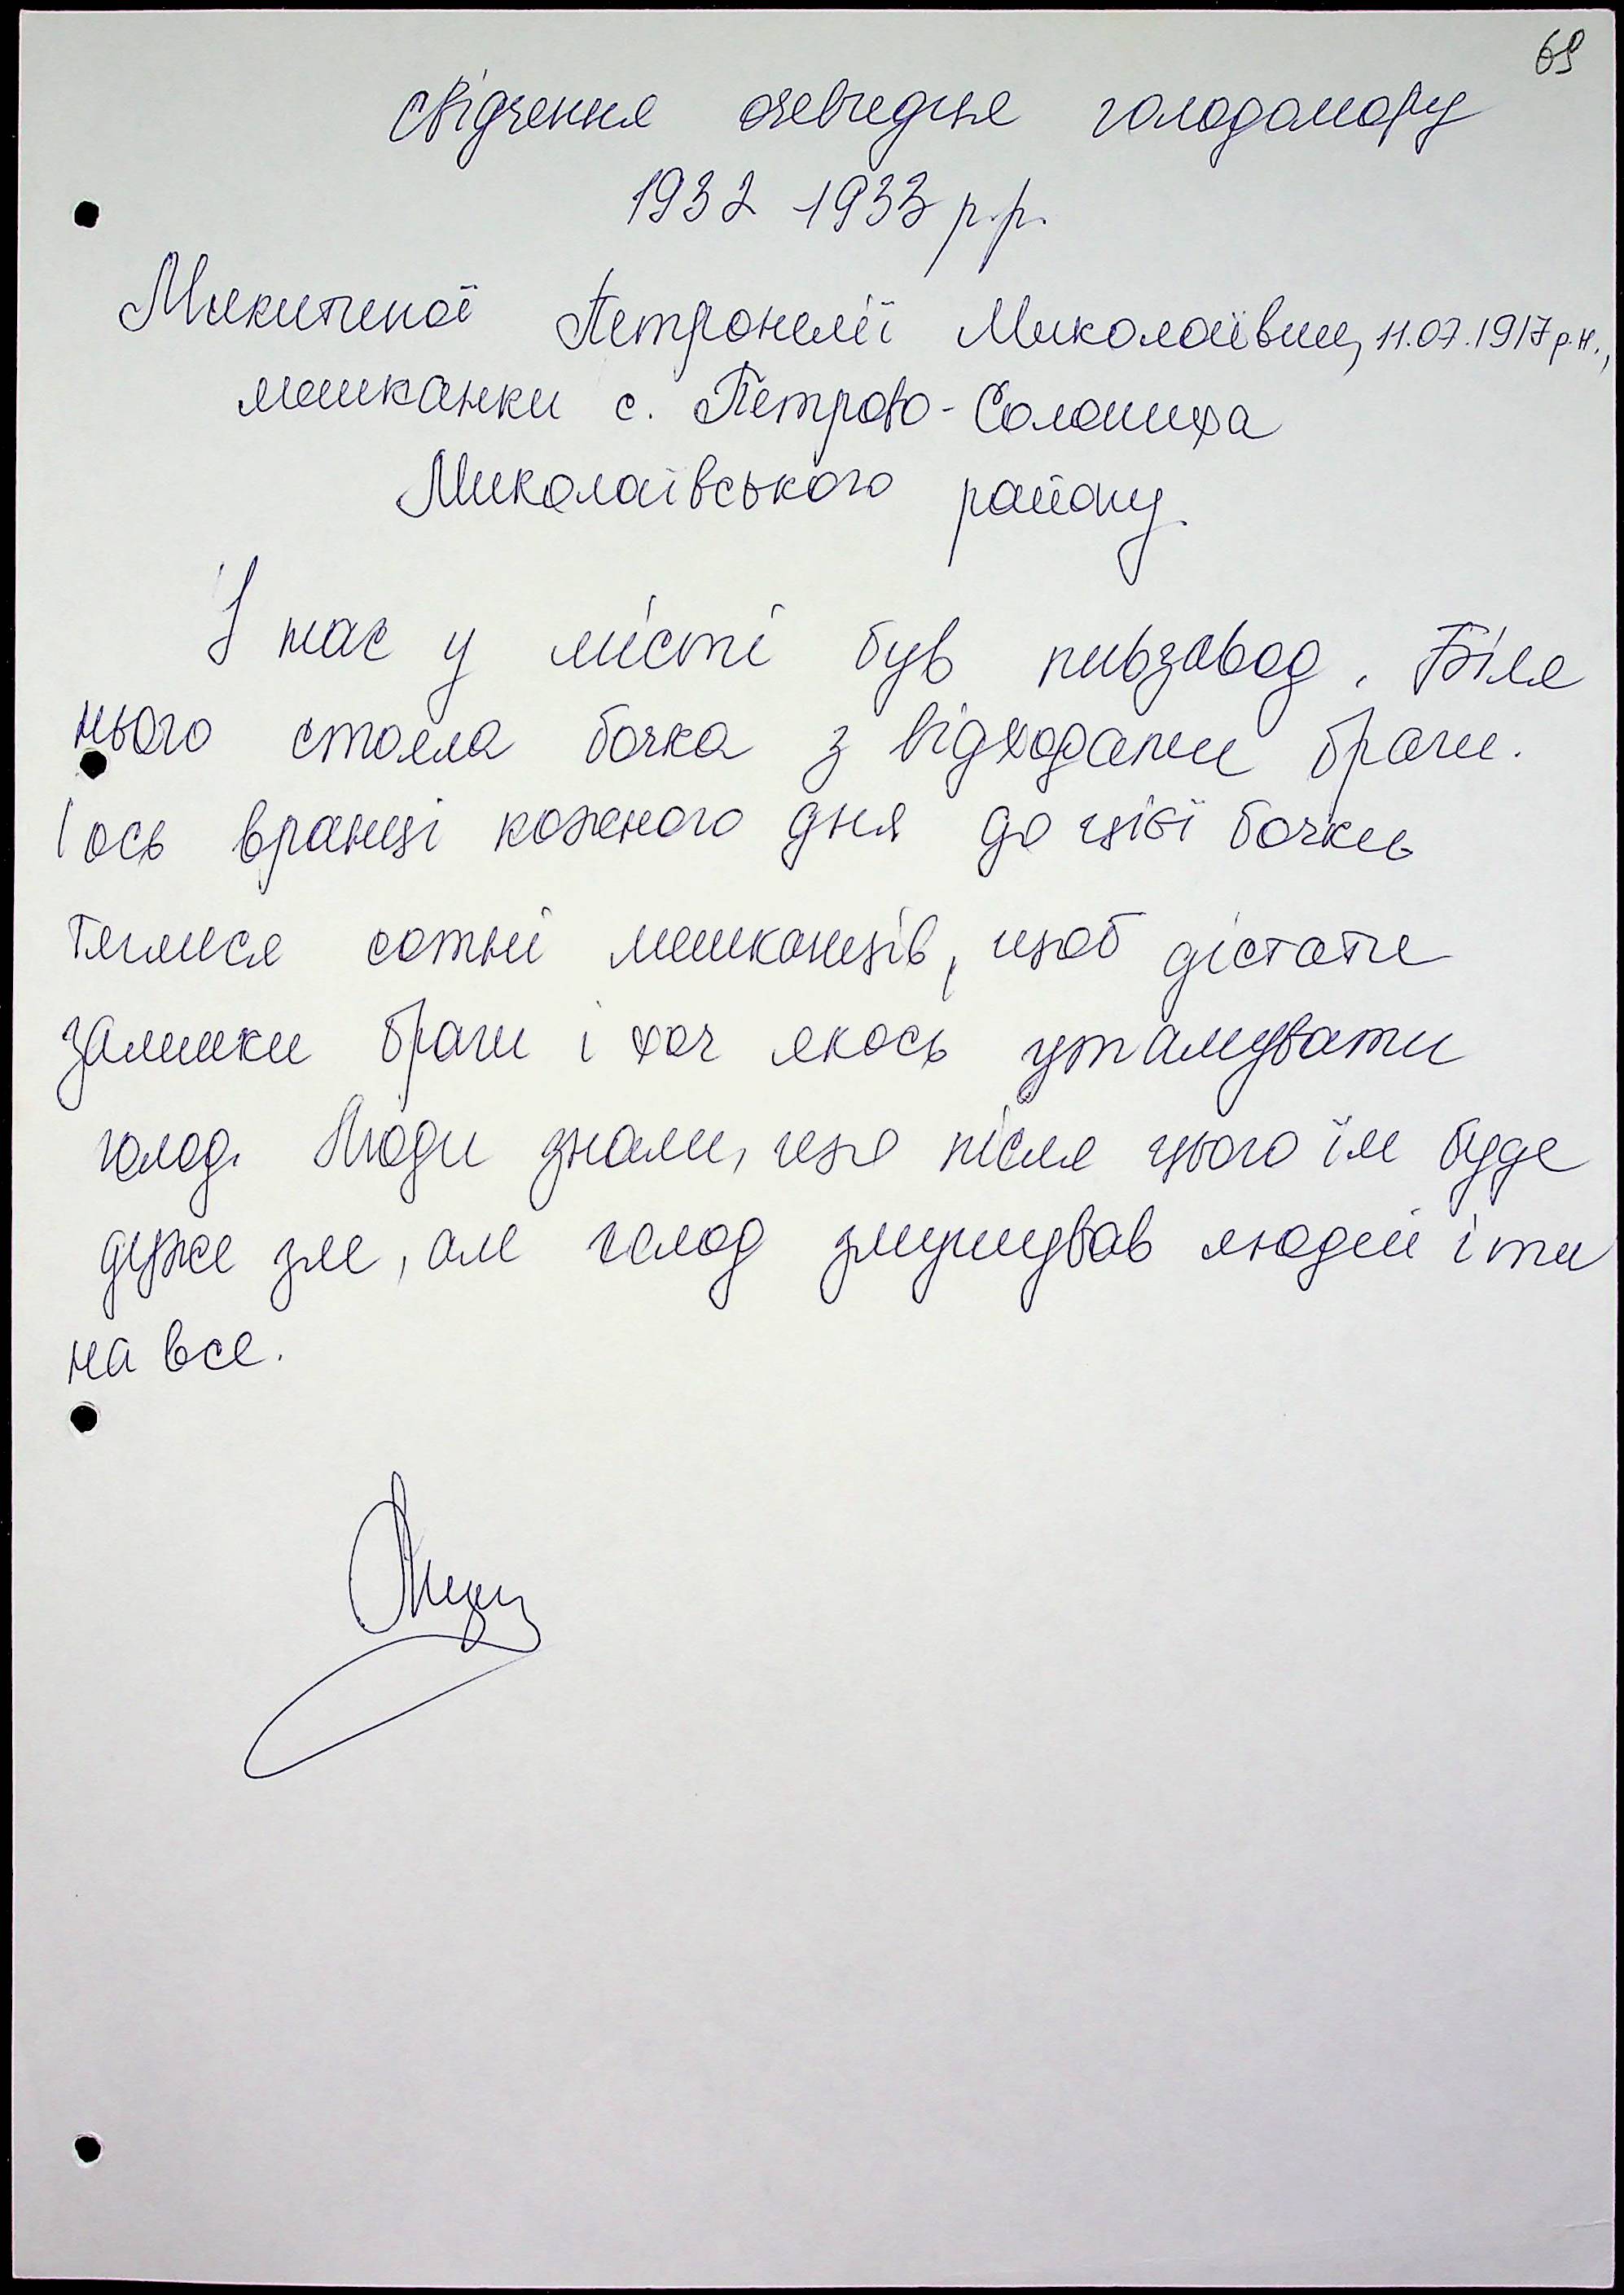 69
Свідчення очевидця голодомору
1932 1933 р.р.
Микитиної Петронелії Миколаївни, 11.07.1917 р.н.,
мешканки с. Петрово-Солониха
Миколаївського району
У нас у місті був пивзавод. Біля
нього стояла бочка з відходами браги.
І ось вранці кожного дня до цієї бочки
тяглися сотні мешканців, щоб дістати
залишки браги і хоч якось утамувати
голод. Люди знали, що після цього їм буде
дуже зле, але голод змушував людей іти
на все.